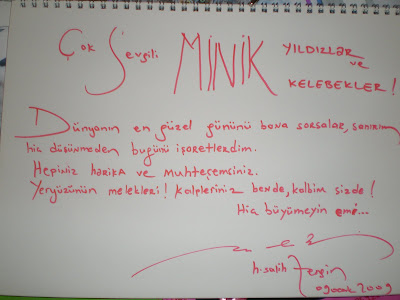 Çok Sevgili MİNİK YILDIZLAR
ve
KELEBEKLER!
Dünyanın en güzel gününü bana sorsalar, sanırım
hiç düşünmeden bugünü işaretlerdim.
Hepiniz harika ve muhteşemsiniz.
Yeryüzünün melekleri! Kalpleriniz bende, kalbim sizde!
Hiç büyümeyin emi...
h. salih zengin
09ocak2009